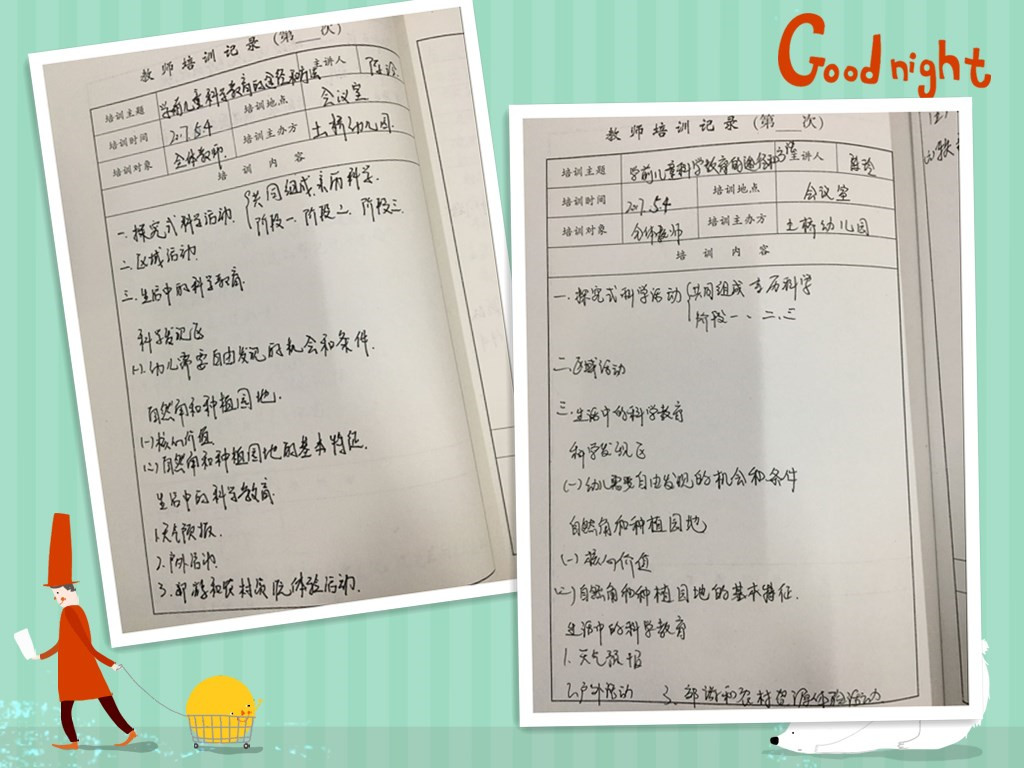 Good night
教师培训记录(第 次)
培训主题 学前儿童科学教育的途径和方法 主讲人 陈玲
培训时间 2017.5.4 培训地点 会议室
培训对象 全体教师. 培训主办方 土桥幼儿园.
培训内容
一.探究式科学活动. {共同组成.亲历科学.
阶段一.阶段二.阶段三.
二.区域活动.
三.生活中的科学教育.
科学发现区
(一).幼儿需要自由发现的机会和条件.
自然角和种植园地.
(一)核心价值
(二)自然角和种植园地的基本特征.
生活中的科学教育.
1.天气预报.
2.户外活动
3.郊游和农村资源体验活动.
教师培训记录(第 次)
培训主题 学前儿童科学教育的途径和方法 主讲人 陈玲
培训时间 2017.5.4 培训地点 会议室
培训对象 全体教师 培训主办方 土桥幼儿园
培训内容
一.探究式科学活动 {共同组成 亲历科学
阶段一、二、三
二.区域活动
三.生活中的科学教育
科学发现区
(一)幼儿需要自由发现的机会和条件
自然角和种植园地
(一)核心价值
(二)自然角和种植园地的基本特征.
生活中的科学教育
1.天气预报
2.户外活动 3.郊游和农村资源体验活动